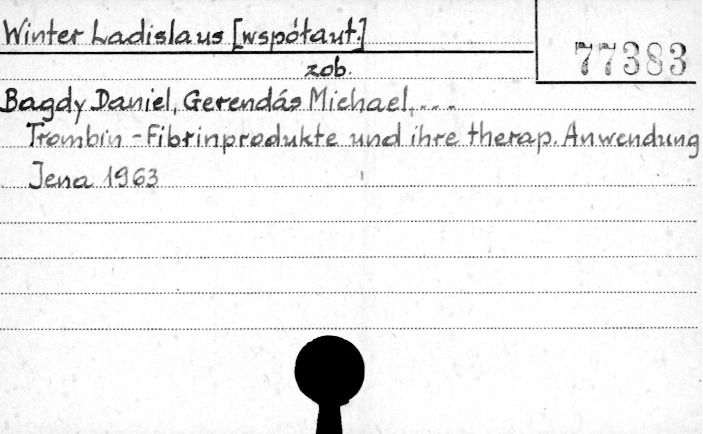 Winter Ladislaus [współaut.]
77383
zob.
Bagdy Daniel, Gerendás Michael, ---
Trombin-Fibrinprodukte und ihre therap. Anwendung
Jena 1963